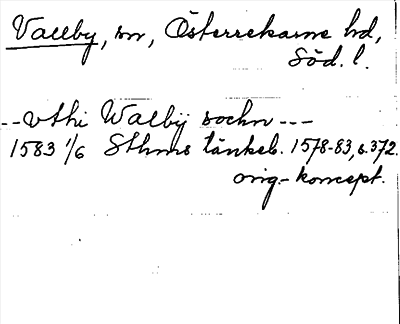 Vallby, sn, Österrekarne hd,
Söd. l.
-- vthi Walbÿ sochn ---
1583 1/6 Sthms tänkeb. 1578-83, s. 372.
orig.-koncept.